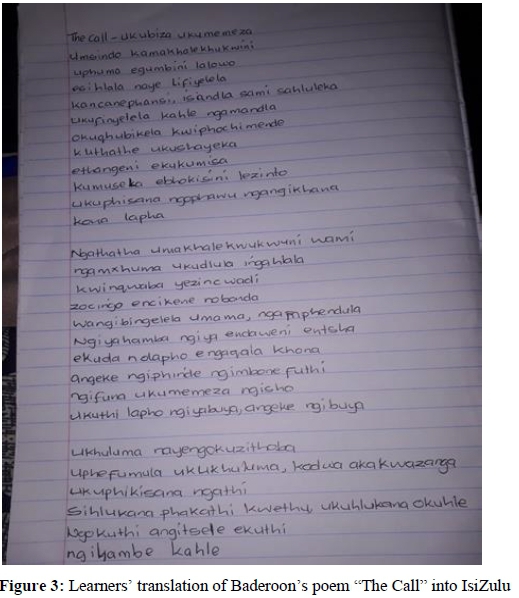 The Call - ukubiza ukumemeza
Umsindo kamakhalekhukwini
uphuma egumbini lalowo
esihlala naye lifiyelela
kancanephansi, isandla sami sahluleka
ukufinyelela kahle ngamandla
okuqhubikela kwiphochimende
kuthathe ukushayeka
ethangeni ekukumisa
kumuseka ebhokisini lezinto
ukuphisana ngophawu ngangikhana
kona lapha
Ngathatha umakhalekwukwuni wami
ngamxhuma ukudlula ingahlala
kwinqwaba yezincwadi
zocingo encikene nobonda
wangibingelela umama, ngapaphendula
Ngiyahamba ngiya endaweni entsha
ekuda ndlapho engagala khona
angeke ngiphinde ngimbone futhi
ngifuna ukumemeza ngisho
ukuthi lapho ngiyabuya, angeke ngibuya
ukhuluma nayengokuzithoba
uphefumula ukukhuluma, kodwa akakwazanga
ukuphikisana ngathi
Sihlukana phakathi kwethu, ukuhlukana okuhle
Ngokuthi angitsele ekuthi
ngihambe kahle
Figure 3: Learners' translation of Baderoon's poem "The Call" into IsiZulu